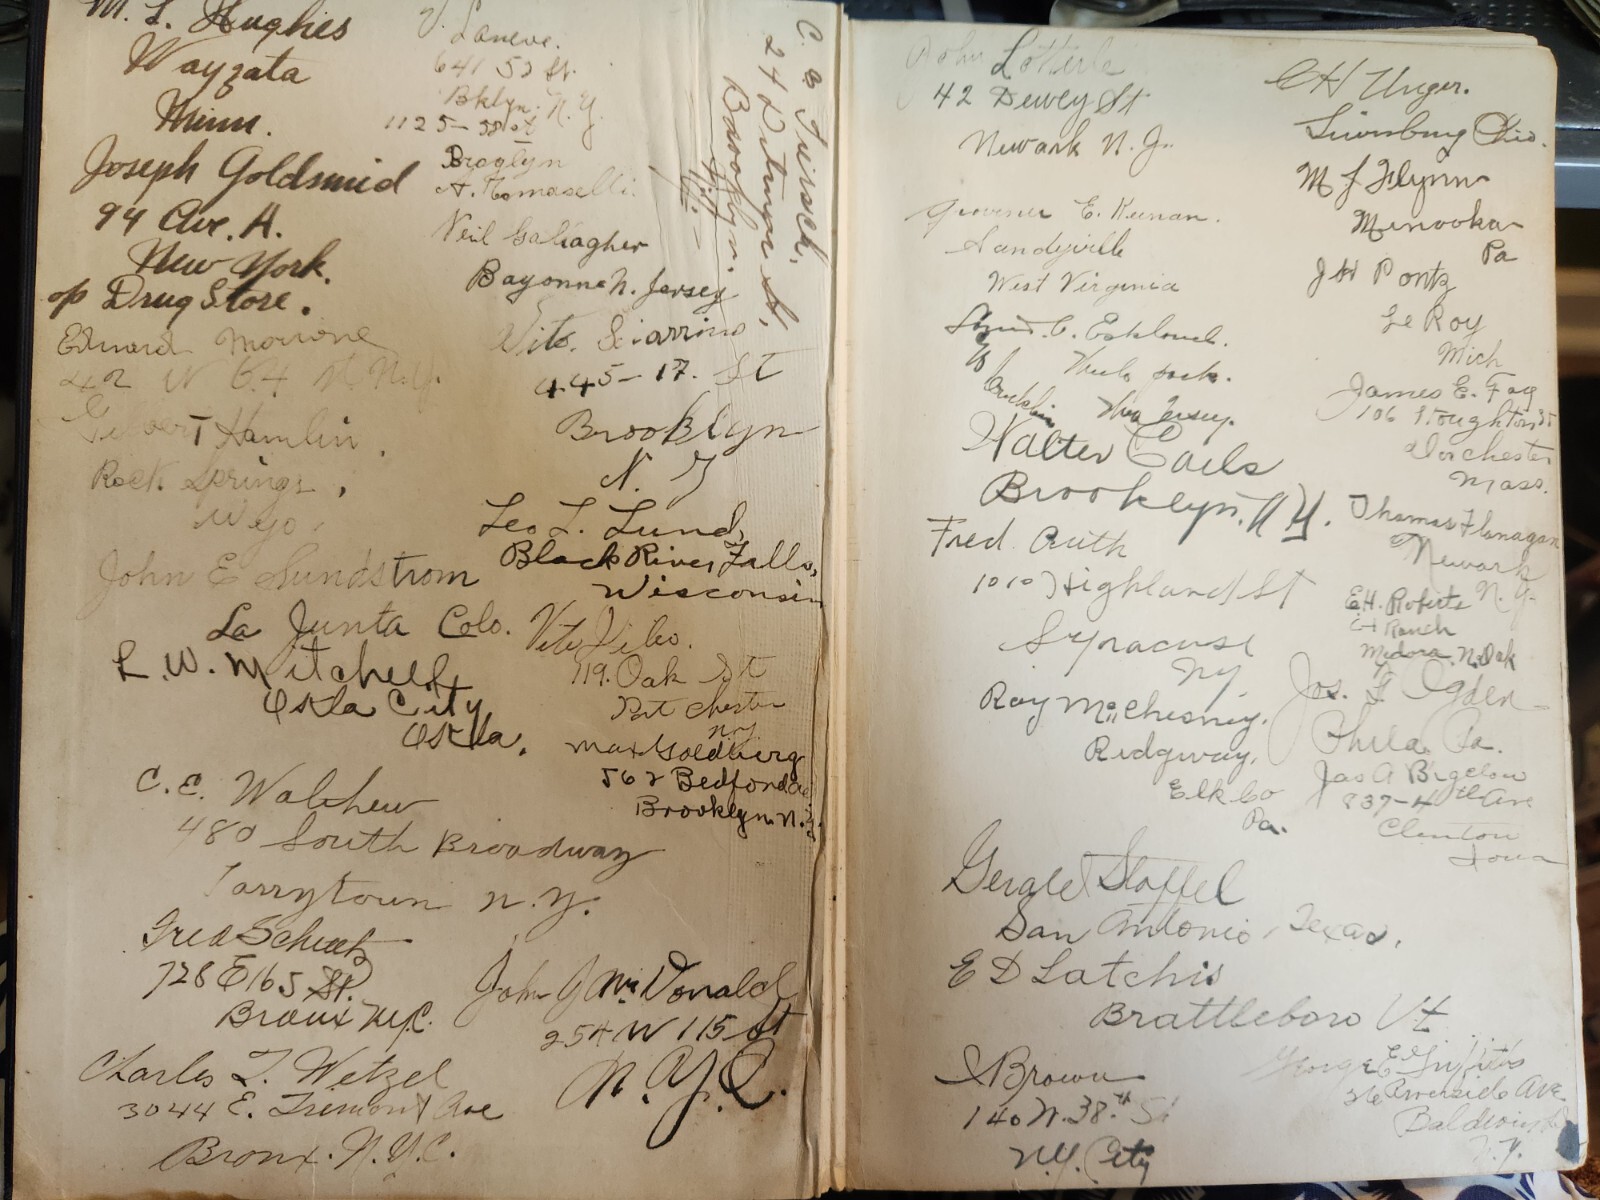 M. L. Hughes
Wayzata
Minn.
Joseph Goldsmid
94 Ave. A.
New York.
op Drug Store.
Edward Morrone
42 W 64 N.Y.
Gilbert Hamlin.
Rock Springs,
Wyo.
John E Sundstrom
La Junta Colo.
L. W. Mitchell
Okla City
Okla.
C. E. Walshew
480 South Broadway
Tarrytown N.Y.
Fred
728 E 165 St.
Bronx N.Y.C.
Charles T. Wetzel
3044 E. Tremont Ave
Bronx. N.Y.C.
V. Laneve.
641 52 St.
Bklyn. N.Y.
1125-58 st
Broglyn
A. Tomaselli.
Neil Gallagher
Bayonne N. Jersey
Vito. Sciarrino
445-17. St
Brooklyn
N. Y
Leo L. Lund,
Black River Falls,
Wisconsin
Vito
119. Oak St
Port Chester
N.Y.
Max Goldberg
562 Bedford Av
Brooklyn. N.Y.
John J McDonald
254 W 115 St
N.Y.C.
C. B.
24 St,
Brooklyn.
N.Y.
John
42 Dewey St
Newark N. J.
Grovener E. Keenan.
Sandyville
West Virginia
C.
Walter Coils
Brooklyn. N.Y.
Fred. Auth
1010 Highland St
Syracuse
NY.
Ray McChesney.
Ridgway,
Elk Co
Pa.
Gerale Staffel
San Antonio, Texas.
E D Latchis
Brattleboro Vt
Brown
140 N. 38.th St
N.Y. City
C H Unger.
Ohio.
M J Flynn
Minooka
Pa
J H Pontz
Le Roy
Mich
James E. Foy
106 Stoughton St
Dorchester
Mass.
Thomas Flanagan
Newark
N. J.
E.H. Roberts
Ranch
Medora, N. Dak
Jos. F Ogden
Phila. Pa.
Jas A Bigelow
837-4th Ave
Clinton
Iowa
George E Griffiths
26 Riverside Ave.
N.Y.